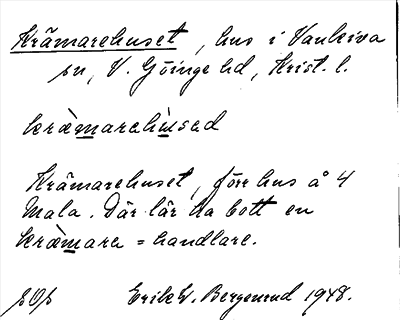 Krämarehuset, hus i Vankiva
sn, V. Göinge hd, Krist. l.
kræmarehùsed
Krämarehuset, förr hus å 4
Mala. Där lär ha bott en
kræmara = handlare.
Erik W. Bergenrud 1948.